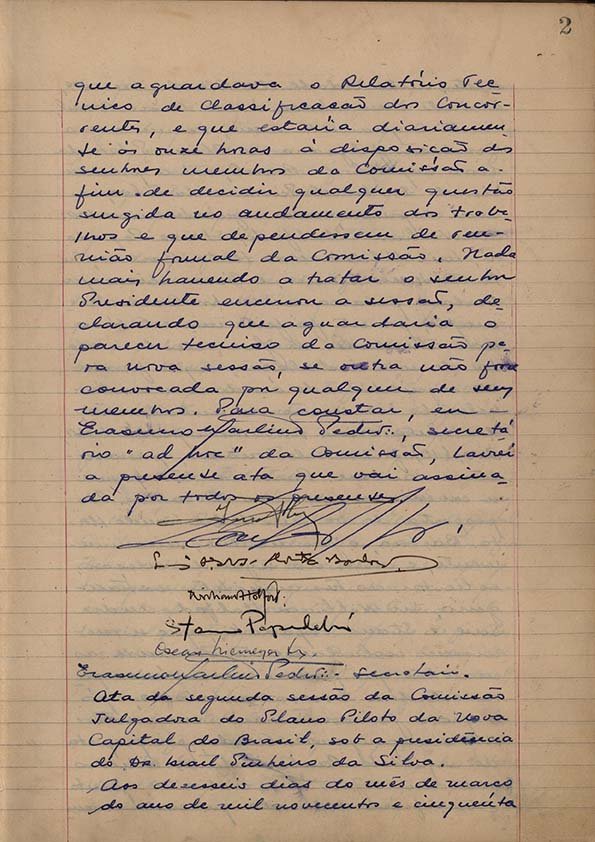 2
que aguardava o Relatório Tec
nico de Classificação dos Concor-
rentes, e que estaria diariamen-
te ás onze horas á disposição dos
senhores membros da Comissão a-
fim de decidir qualquer questão
surgida no andamento dos traba-
lhos e que dependessem de reu-
nião formal da Comissão. Nada
mais havendo a tratar o senhor
Presidente encerrou a sessão, de-
clarando que aguardaria o
parecer tecnico da Comissão pa-
ra nova sessão, se outra não fora
convocada por qualquer de seus
membros. Para constar, eu -
Erasmo Martins Pedro, secretá
rio "ad hoc" da Comissão, lavrei
a presente ata que vai assina-
da por todos os presentes.
Stamo Papadaki
Oscar Niemeyer
Erasmo Martins Pedro - secretario.
Ata da segunda sessão da Comissão
Julgadora do Plano Piloto da Nova
Capital do Brasil, sob a presidência
do Dr. Israel Pinheiro da Silva.
Aos dezesseis dias do mês de março
do ano de mil novecentos e cinquenta